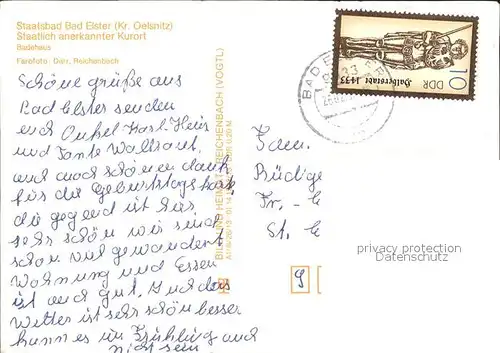 Staatsbad Bad Elster (Kr. Oelsnitz)
Staatlich anerkannter Kurort
Badehaus
Farbfoto: Darr, Reichenbach
Schöne grüße aus
Bad Elster senden
euch Onkel Karl-Heinz
und Tante Waltraut,
und auch schönen dank
für die Geburtstagskart,
die gegend ist hier
sehr schön wir sind
schon viel gewandert
Wohnung und Essen
ist auch gut. Auch das
Wetter ist sehr schön besser
kann es im Frühling auch
nicht sein.
BILD UND HEIMAT REICHENBACH (VOGTL)
BAD E
10
DDR
Halberstadt 1433
Fam.
Rüdige
Fr.-E
St. E
privacy protection
Datenschutz
9